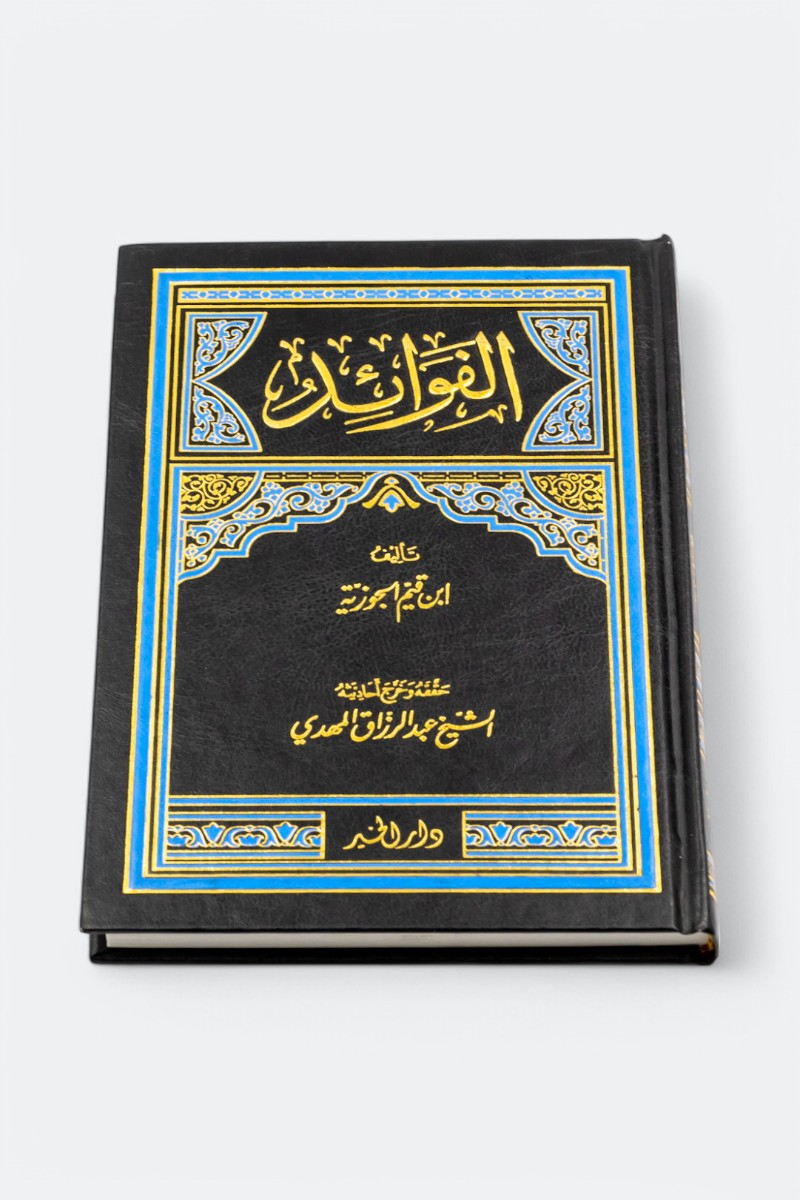 الفَوَائِدُ
تَأليفُ
ابن قيّم الجوزيّة
حَقَّقَهُ وَخَرَّجَ أَحَاديثَهُ
الشيخ عبد الرزاق المهدي
دار الخير